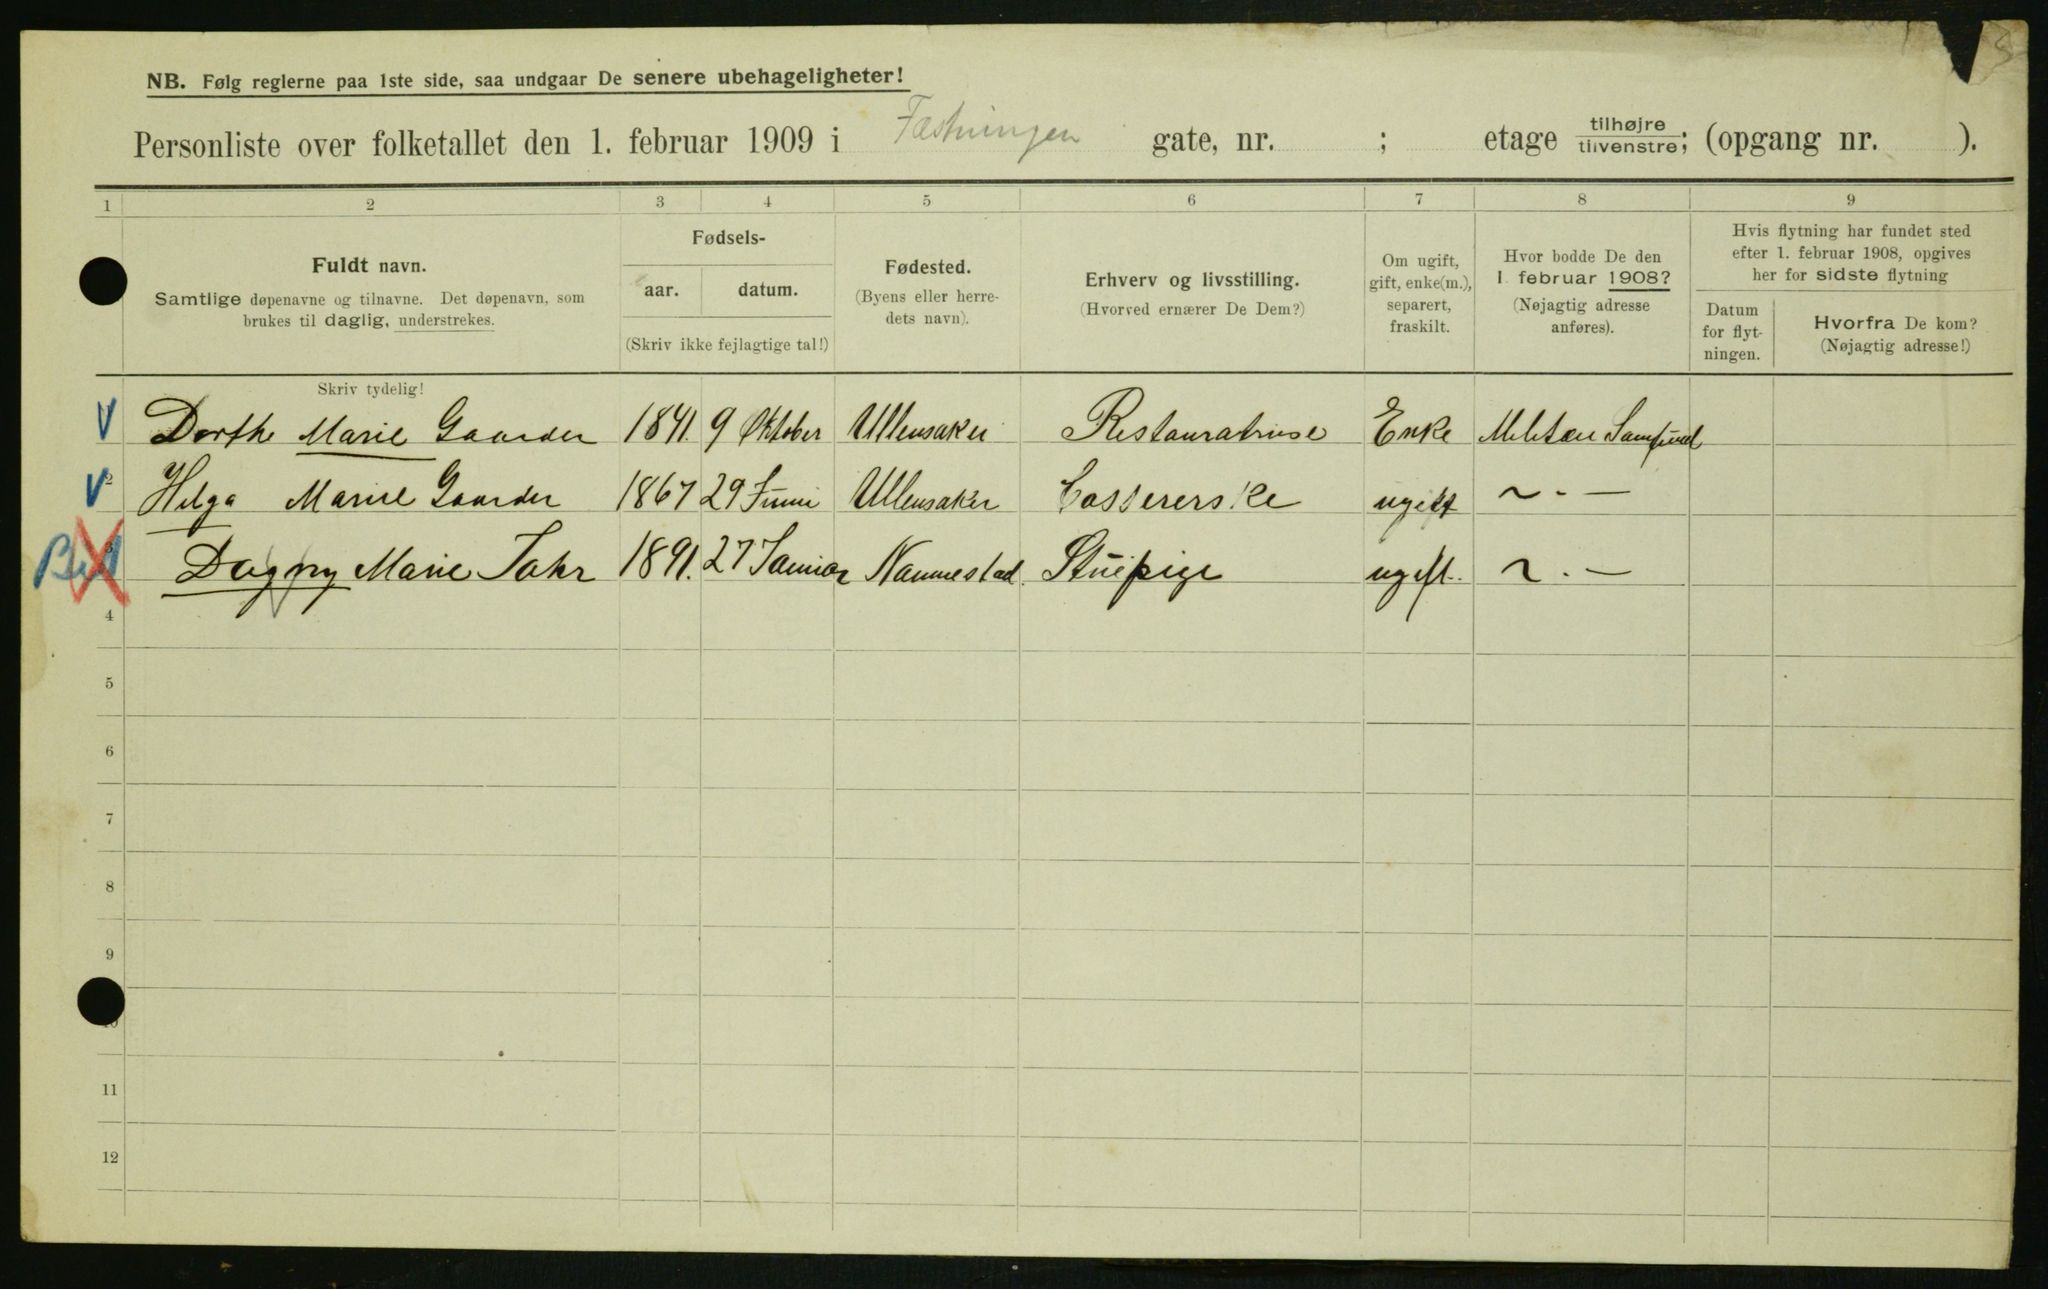 NB. Følg reglerne paa 1ste side, saa undgaar De senere ubehageligheter!
Personliste over folketallet den 1. februar 1909 i Fæstningen gate, nr. ; etage tilhøjre tilvenstre; (opgang nr. ).
1 2 3 4 5 6 7 8 9
Fuldt navn.
Samtlige døpenavne og tilnavne. Det døpenavn, som
brukes til daglig, understrekes.
Fødsels-
aar. datum.
(Skriv ikke fejlagtige tal!)
Fødested.
(Byens eller herre-
dets navn).
Erhverv og livsstilling.
(Hvorved ernærer De Dem?)
Om ugift,
gift, enke(m.),
separert,
fraskilt.
Hvor bodde De den
1. februar 1908?
(Nøjagtig adresse
anføres).
Hvis flytning har fundet sted
efter 1. februar 1908, opgives
her for sidste flytning
Datum
for flyt-
ningen.
Hvorfra De kom?
(Nøjagtig adresse!)
Skriv tydelig!
Dorthe Marie Gaarder 1841. 9 Oktober Ullensaker Restauratrise Enke Militær Samfund
2 Helga Marie Gaarder 1867 29 Juni Ullensaker Cassererske ugift ~ . —
3 Dagny Marie Jahr 1891. 27 Januar Nannestad. Stuepige ugift. ~ . —
4
5
6
7
8
9
10
11
12